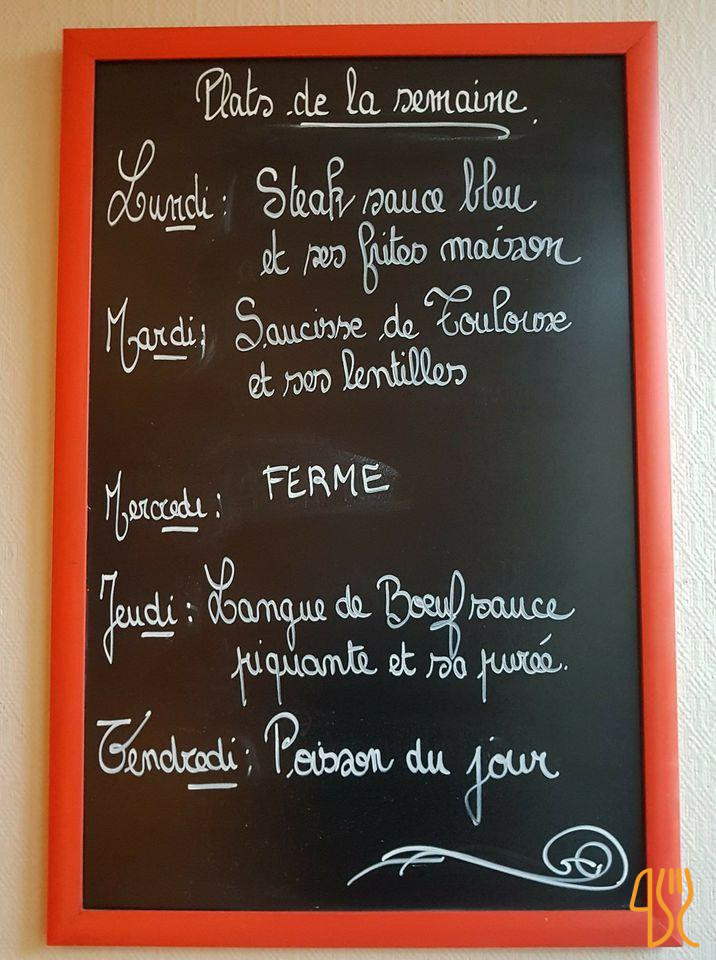 Plats de la semaine.
Lundi : Steak sauce bleu
et ses frites maison
Mardi : Saucisse de Toulouse
et ses lentilles
Mercredi : FERME
Jeudi : Langue de Boeuf sauce
piquante et sa purée.
Vendredi : Poisson du jour